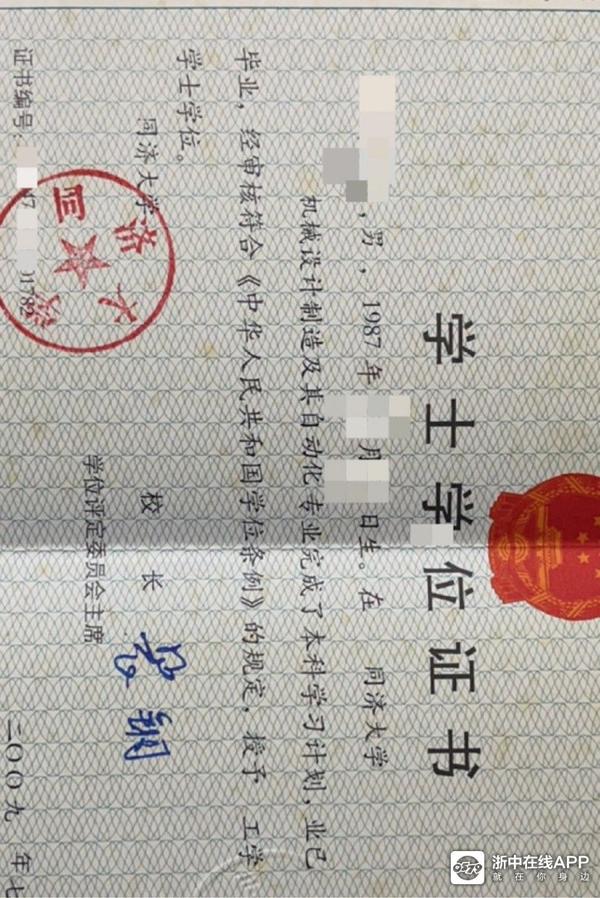 学士学位证书
，男，1987年
月
日生。在 同济大学
机械设计制造及其自动化专业完成了本科学习计划，业已
毕业，经审核符合《中华人民共和国学位条例》的规定，授予 工学
学士学位。
同济大学
校 长
学位评定委员会主席
证书编号：
二〇〇九 年七
同济大学
浙中在线APP
就在你身边